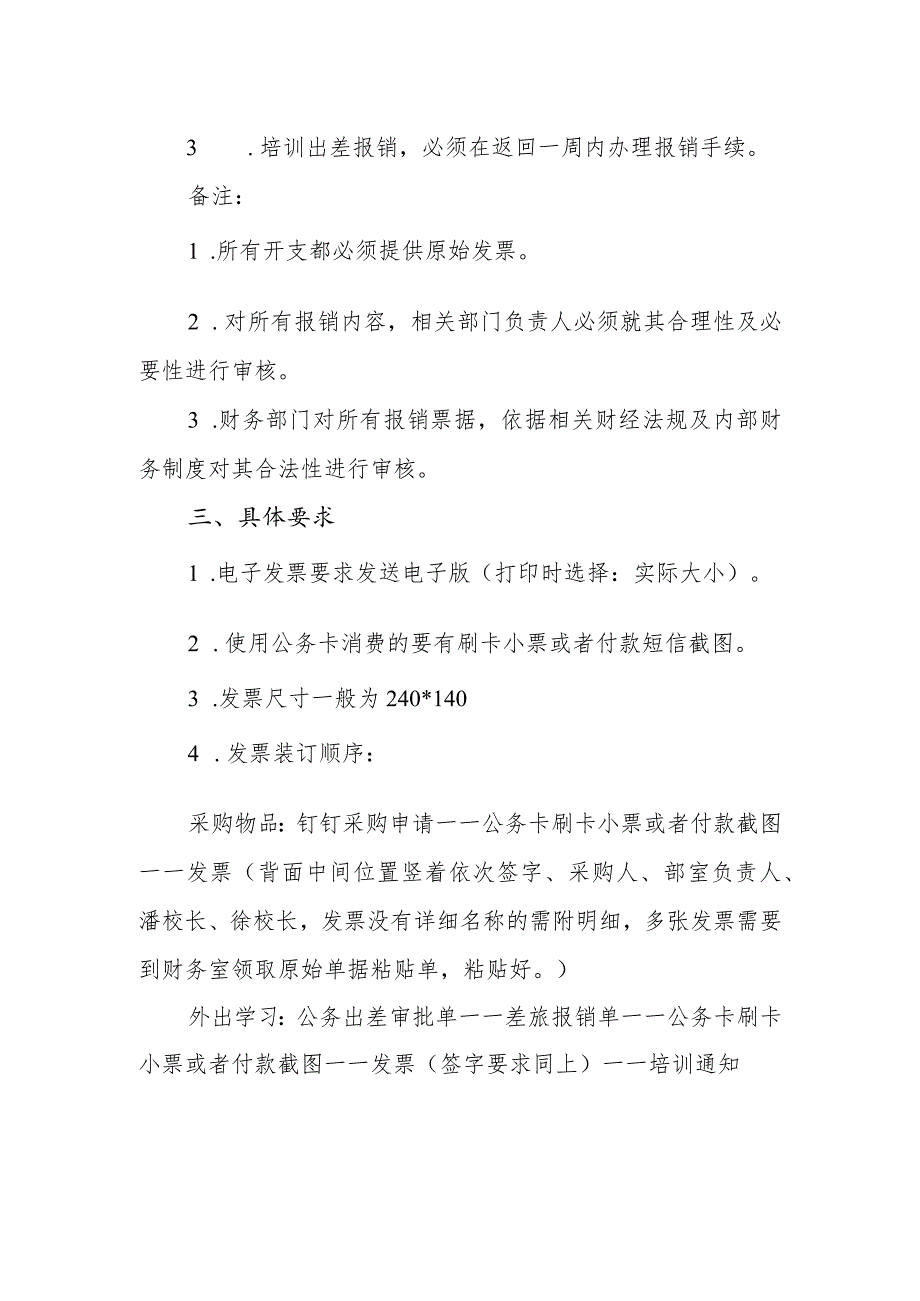 3 .培训出差报销，必须在返回一周内办理报销手续。
备注：
1 .所有开支都必须提供原始发票。
2 .对所有报销内容，相关部门负责人必须就其合理性及必
要性进行审核。
3 .财务部门对所有报销票据，依据相关财经法规及内部财
务制度对其合法性进行审核。
三、具体要求
1 .电子发票要求发送电子版（打印时选择：实际大小）。
2 .使用公务卡消费的要有刷卡小票或者付款短信截图。
3 .发票尺寸一般为 240*140
4 .发票装订顺序：
采购物品：钉钉采购申请一一公务卡刷卡小票或者付款截图
一一发票（背面中间位置竖着依次签字、采购人、部室负责人、
潘校长、徐校长，发票没有详细名称的需附明细，多张发票需要
到财务室领取原始单据粘贴单，粘贴好。）
外出学习：公务出差审批单一一差旅报销单一一公务卡刷卡
小票或者付款截图一一发票（签字要求同上）一一培训通知